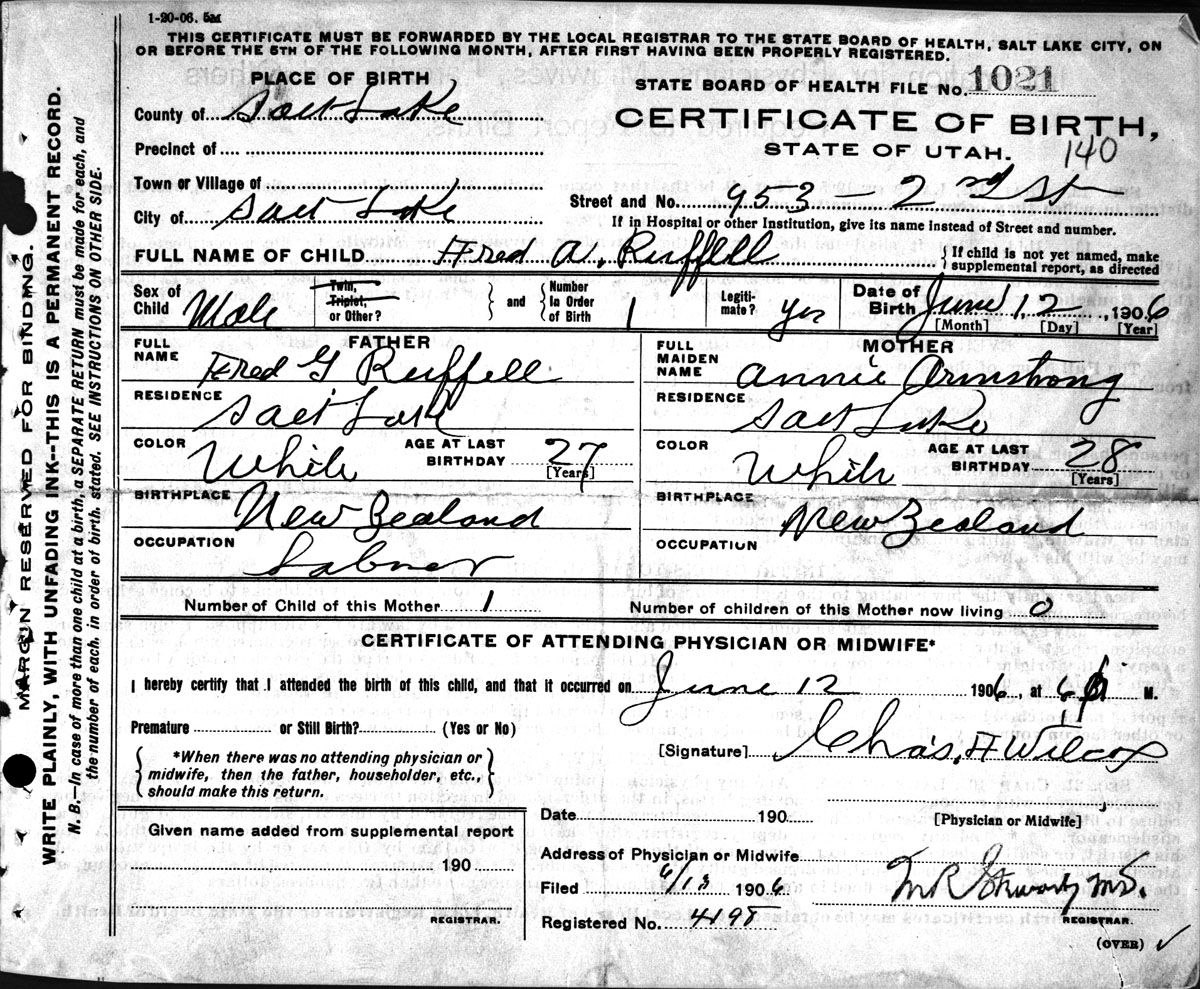 1-20-06. 5m
THIS CERTIFICATE MUST BE FORWARDED BY THE LOCAL REGISTRAR TO THE STATE BOARD OF HEALTH, SALT LAKE CITY, ON
OR BEFORE THE 5TH OF THE FOLLOWING MONTH, AFTER FIRST HAVING BEEN PROPERLY REGISTERED.
PLACE OF BIRTH
County of Salt Lake
Precinct of
Town or Village of
City of Salt Lake
STATE BOARD OF HEALTH FILE No. 1021
CERTIFICATE OF BIRTH,
STATE OF UTAH. 140
Street and No. 953 2nd St
If in Hospital or other Institution, give its name instead of Street and number.
FULL NAME OF CHILD Fred A. Ruffell { If child is not yet named, make
supplemental report, as directed
Sex of Child Male
Twin, Triplet, or Other? } and { Number In Order of Birth 1
Legiti-mate? Yes
Date of Birth June 12, 1906
[Month] [Day] [Year]
FATHER
FULL NAME Fred G Ruffell
RESIDENCE Salt Lake
COLOR White AGE AT LAST BIRTHDAY 27
[Years]
BIRTHPLACE New Zealand
OCCUPATION Labner
MOTHER
FULL MAIDEN NAME Annie Armstrong
RESIDENCE Salt Lake
COLOR White AGE AT LAST BIRTHDAY 28
[Years]
BIRTHPLACE New Zealand
OCCUPATION
Number of Child of this Mother 1 Number of children of this Mother now living 0
CERTIFICATE OF ATTENDING PHYSICIAN OR MIDWIFE*
I hereby certify that I attended the birth of this child, and that it occurred on June 12 1906, at 6 P M.
Premature or Still Birth? (Yes or No)
{ *When there was no attending physician or
midwife, then the father, householder, etc.,
should make this return. }
[Signature] Chas. H Wilcox
Given name added from supplemental report
190
REGISTRAR.
Date 190 [Physician or Midwife]
Address of Physician or Midwife
Filed 6/13 1906 M.D.
Registered No. 4198 REGISTRAR.
(OVER)
MARGIN RESERVED FOR BINDING.
WRITE PLAINLY, WITH UNFADING INK--THIS IS A PERMANENT RECORD.
N. B.—In case of more than one child at a birth, a SEPARATE RETURN must be made for each, and
the number of each, in order of birth, stated. SEE INSTRUCTIONS ON OTHER SIDE.